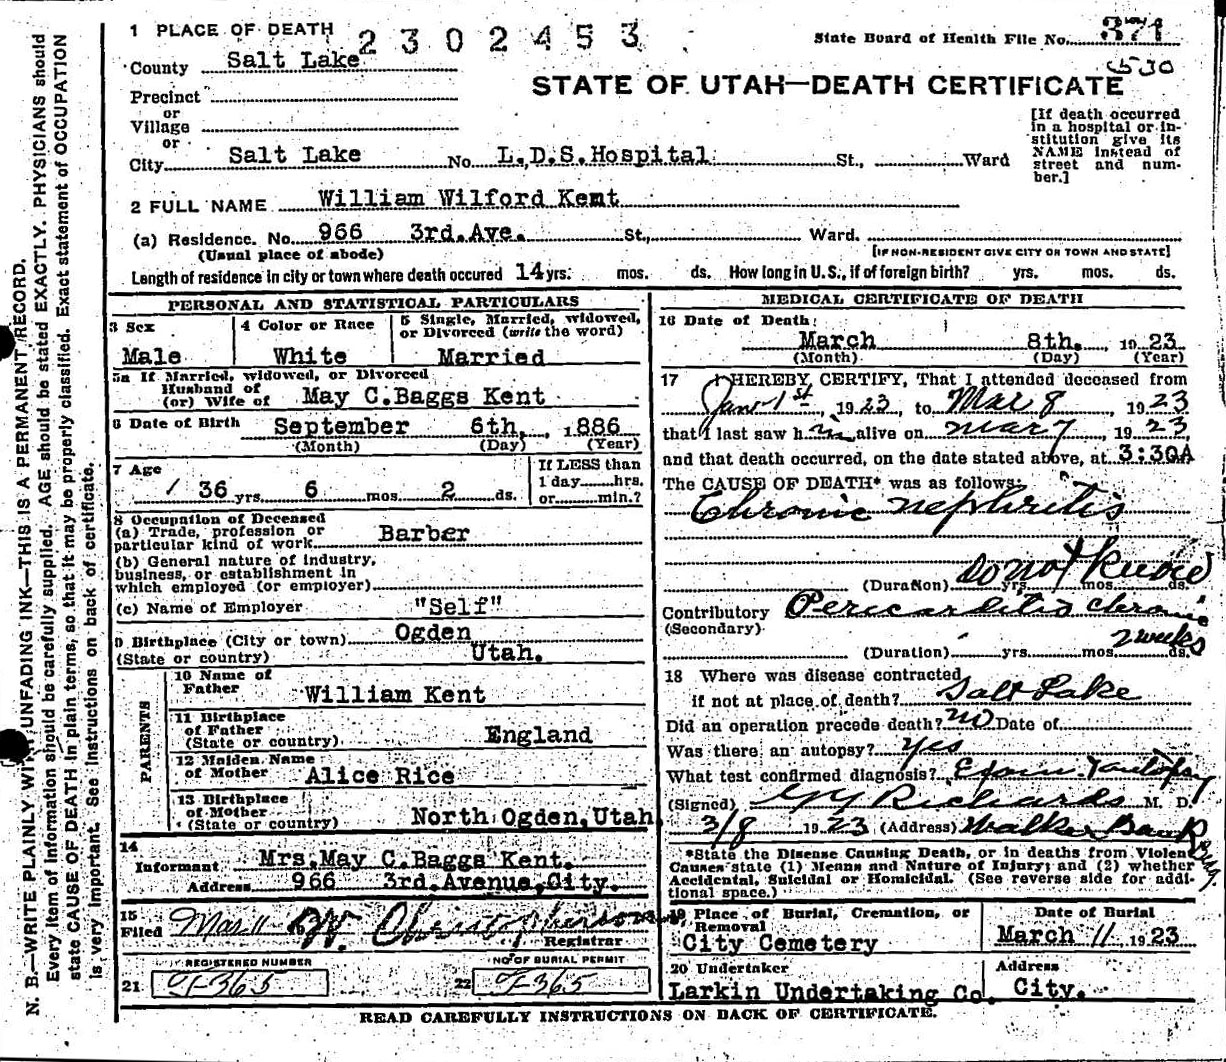 1 PLACE OF DEATH 2302453 State Board of Health File No. 371
County Salt Lake 530
STATE OF UTAH—DEATH CERTIFICATE
Precinct
or
Village
or
City Salt Lake No. L.D.S.Hospital St., Ward
[If death occurred
in a hospital or in-
stitution give its
NAME instead of
street and num-
ber.]
2 FULL NAME William Wilford Kent
(a) Residence. No. 966 3rd.Ave. St., Ward.
(Usual place of abode) [IF NON-RESIDENT GIVE CITY OR TOWN AND STATE]
Length of residence in city or town where death occured 14 yrs. mos. ds. How long in U.S., if of foreign birth? yrs. mos. ds.
PERSONAL AND STATISTICAL PARTICULARS
3 Sex 4 Color or Race 5 Single, Married, widowed,
or Divorced (write the word)
Male White Married
5a If Married, widowed, or Divorced
Husband of
(or) Wife of May C.Baggs Kent
6 Date of Birth September 6th, 1886
(Month) (Day) (Year)
7 Age If LESS than
1 day hrs.
36 yrs. 6 mos. 2 ds. or min.?
8 Occupation of Deceased
(a) Trade, profession or
particular kind of work Barber
(b) General nature of industry,
business, or establishment in
which employed (or employer)
(c) Name of Employer "Self"
9 Birthplace (City or town) Ogden
(State or country) Utah.
PARENTS
10 Name of
Father William Kent
11 Birthplace
of Father
(State or country) England
12 Maiden Name
of Mother Alice Rice
13 Birthplace
of Mother
(State or country) North Ogden, Utah
14
Informant Mrs.May C.Baggs Kent.
Address 966 3rd.Avenue,City.
15
Filed Mar 11 W. Christopherson
Registrar
REGISTERED NUMBER NO OF BURIAL PERMIT
21 365 22 365
MEDICAL CERTIFICATE OF DEATH
16 Date of Death:
March 8th. 1923
(Month) (Day) (Year)
17 I HEREBY CERTIFY, That I attended deceased from
Jan 1st, 1923, to Mar 8, 1923
that I last saw him alive on Mar 7, 1923
and that death occurred, on the date stated above, at 3:30A
The CAUSE OF DEATH* was as follows:
Chronic nephritis
(Duration) Do not know yrs. mos. ds.
Contributory Pericarditis chronic
(Secondary) 2 weeks
(Duration) yrs. mos. ds.
18 Where was disease contracted
if not at place of death? Salt Lake
Did an operation precede death? no Date of
Was there an autopsy? yes
What test confirmed diagnosis? Exam. autopsy
(Signed) Richards M. D.
3/8 1923 (Address) Walker Bank Bldg.
*State the Disease Causing Death, or in deaths from Violent
Causes state (1) Means and Nature of Injury; and (2) whether
Accidental, Suicidal or Homicidal. (See reverse side for addi-
tional space.)
19 Place of Burial, Cremation, or Date of Burial
Removal
City Cemetery March 11, 1923
20 Undertaker Address
Larkin Undertaking Co. City.
READ CAREFULLY INSTRUCTIONS ON BACK OF CERTIFICATE.
N. B.—WRITE PLAINLY WITH UNFADING INK—THIS IS A PERMANENT RECORD.
Every item of information should be carefully supplied. AGE should be stated EXACTLY. PHYSICIANS should
state CAUSE OF DEATH in plain terms, so that it may be properly classified. Exact statement of OCCUPATION
is very important. See instructions on back of certificate.